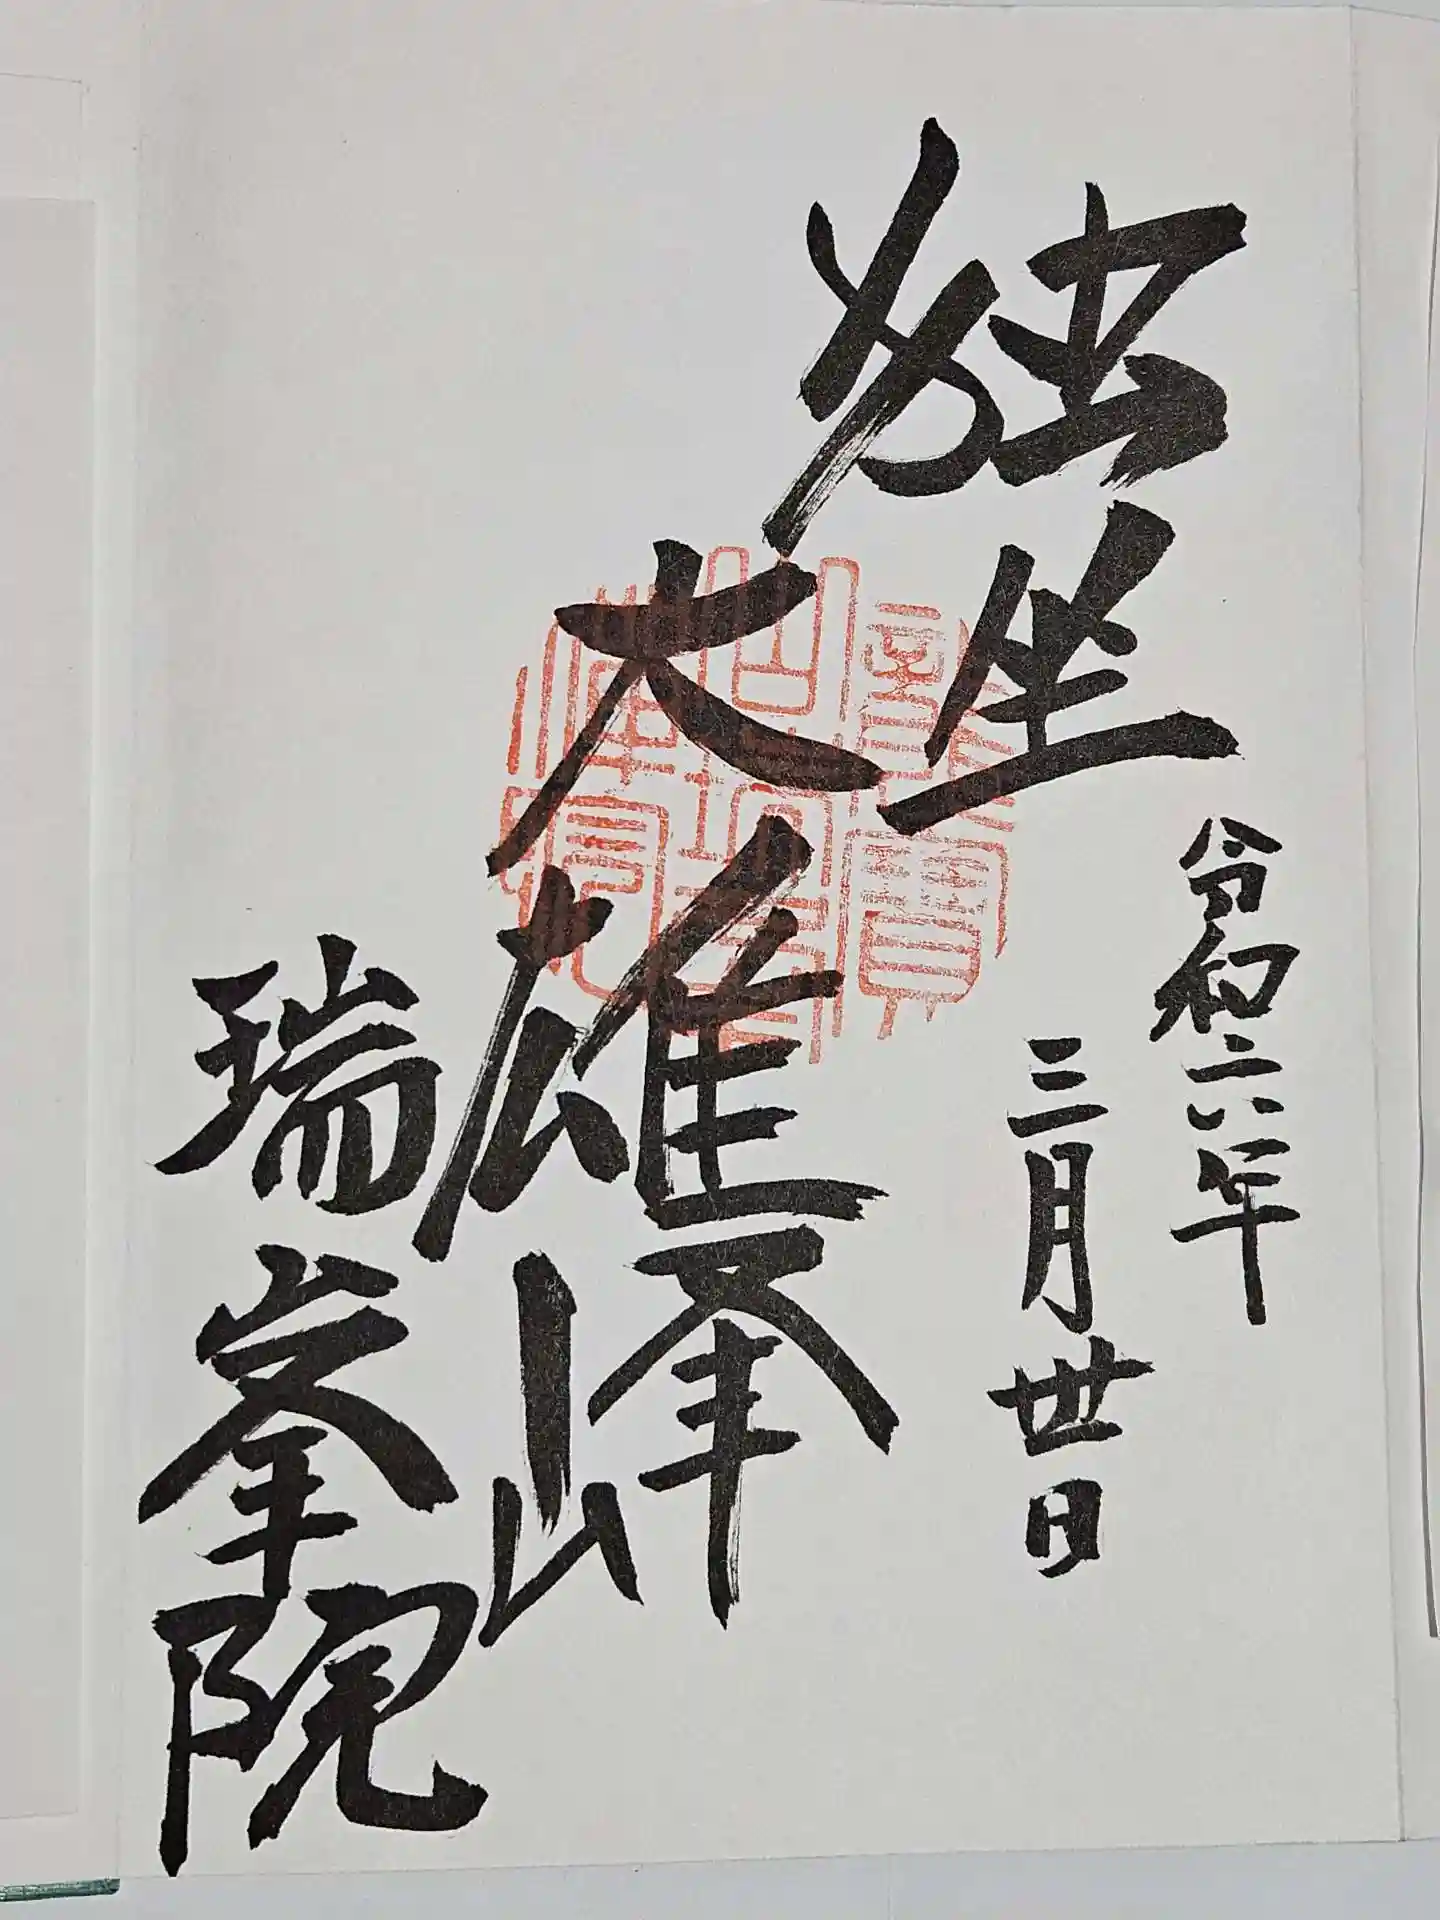 独坐
大雄峰
令和六年
三月卅日
瑞峯院